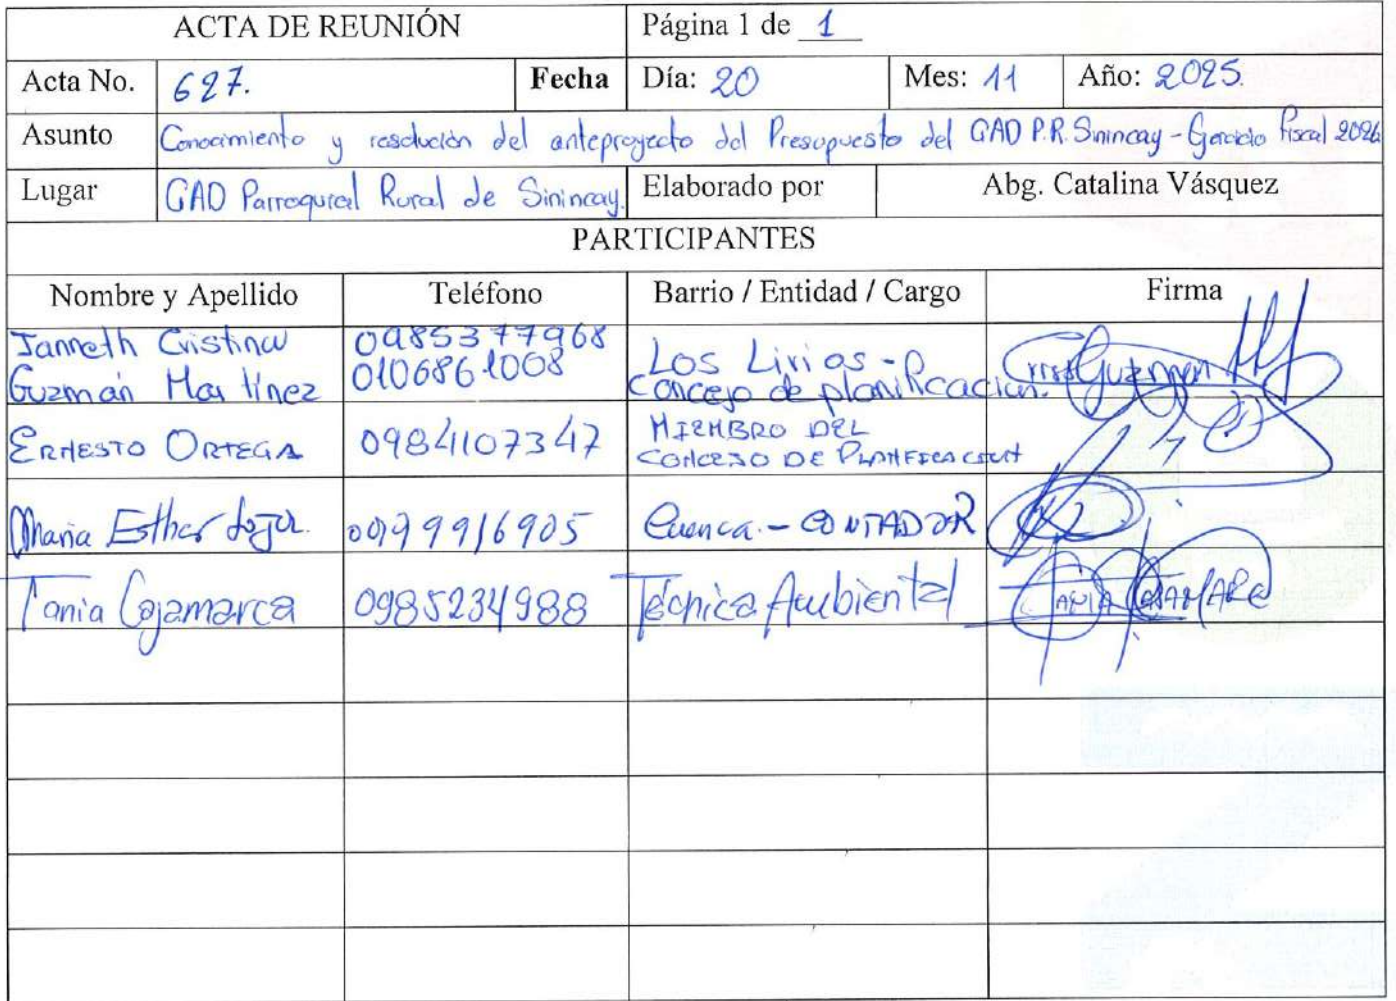 ACTA DE REUNIÓN Página 1 de 1
Acta No. 627. Fecha Día: 20 Mes: 11 Año: 2025.
Asunto Conocimiento y resolución del anteproyecto del Presupuesto del GAD P.R. Sinincay - Ejercicio Fiscal 2026
Lugar GAD Parroquial Rural de Sinincay. Elaborado por Abg. Catalina Vásquez
PARTICIPANTES
Nombre y Apellido Teléfono Barrio / Entidad / Cargo Firma
Janneth Cristina 0985377968 Los Lirios -
Guzmán Martínez 0106861008 Concejo de planificación. Cris Guzman
ERNESTO ORTEGA 0984107347 MIEMBRO DEL
CONCEJO DE PLANIFICACION
Maria Esther 0999916905 Cuenca. - CONTADOR
Tania Cajamarca 0985234988 Técnica Ambiental TANIA CAJAMARCA